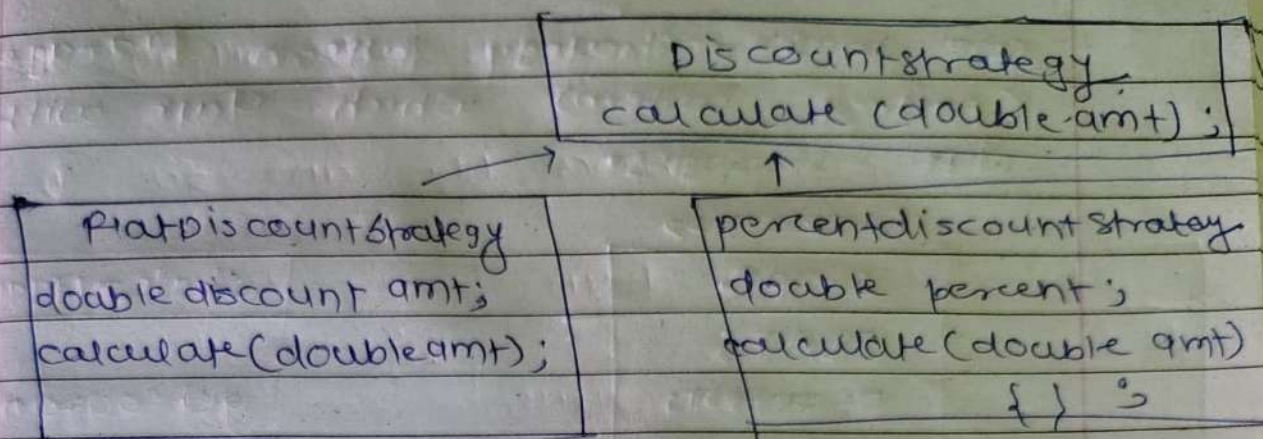 Discountstrategy
calculate (double amt);
FlatDiscountStrategy
double discount amt;
calculate(double amt);
percentdiscount Stratey
double percent;
calculate (double amt)
{ } ;